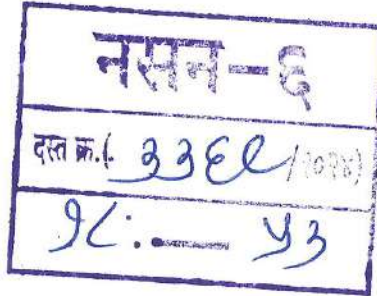 नसन-६
दस्त क्र.(. ३३६९/२०२४)
१८:-- ५३